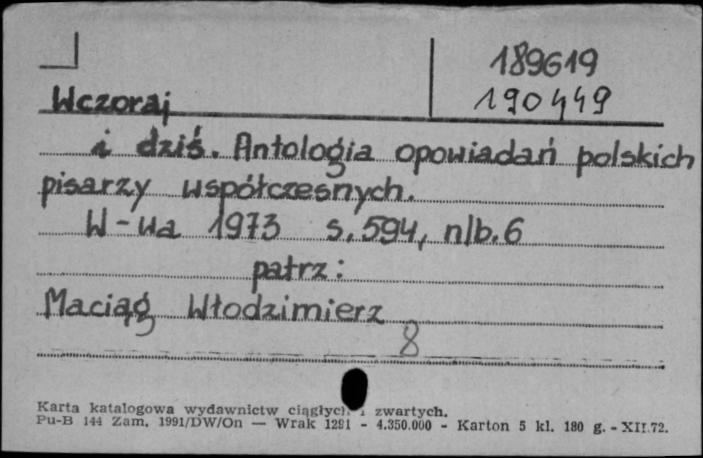 189619
190449
Wczoraj
i dziś. Antologia opowiadań polskich
pisarzy współczesnych.
W-wa 1973 s. 594, nlb. 6
patrz:
Maciąg Włodzimierz
8
Karta katalogowa wydawnictw ciągłych i zwartych.
Pu-B 144 Zam. 1991/DW/On — Wrak 1291 - 4.350.000 - Karton 5 kl. 180 g. - XII.72.